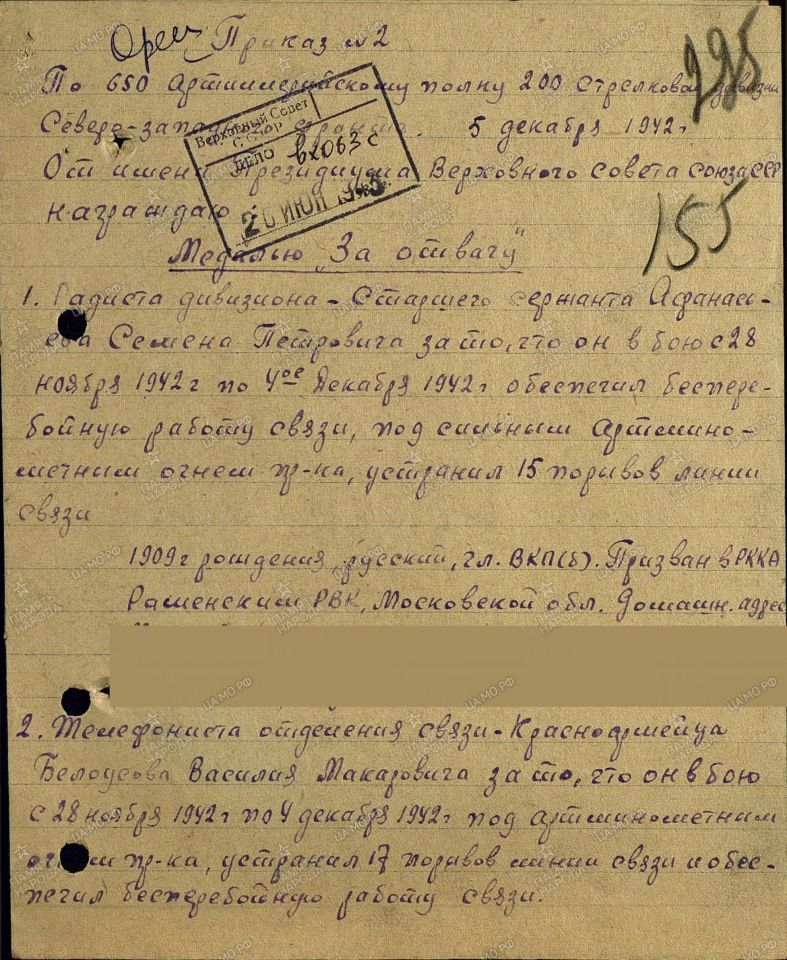 Приказ №2
295
По 650 артиллерийскому полку 200 стрелковой дивизии
Северо-западного фронта. 5 декабря 1942г
Верховный Совет
С.С.С.Р.
ДЕЛО вх063с
20 ИЮЛ
От имени Президиума Верховного совета союза ССР
награждаю:
155
Медалью "За отвагу"
1. Радиста дивизиона - Старшего сержанта Афанась-
ева Семена Петровича за то, что он в бою с 28
ноября 1942г по 4ое Декабря 1942г обеспечил беспере-
бойную работу связи, под сильным артмино-
метным огнем пр-ка, устранил 15 порывов линии
связи
1909г рождения, русский, чл. ВКП(б). Призван в РККА
Раменским РВК, Московской обл. Домашн. адрес
2. Телефониста отделения связи - Красноармейца
Белоусова Василия Макаровича за то, что он в бою
с 28 ноября 1942г по 4 декабря 1942г под артминометным
огнем пр-ка, устранил 17 порывов линии связи и обес-
печил бесперебойную работу связи.